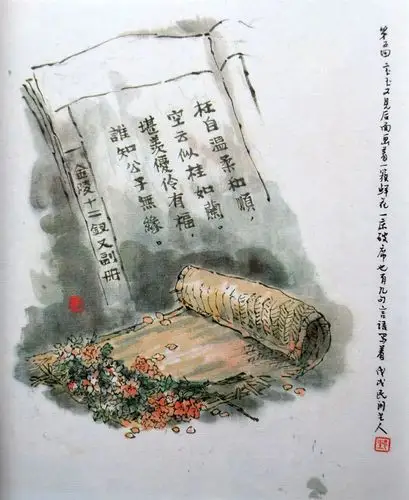 第五回 宝玉又见后面画着一簇鲜花一床破席也有几句言語写着 戊戌民间艺人
枉自溫柔和順，
空云似桂如蘭。
堪羡優伶有福，
誰知公子無緣。
金陵十二釵又副冊